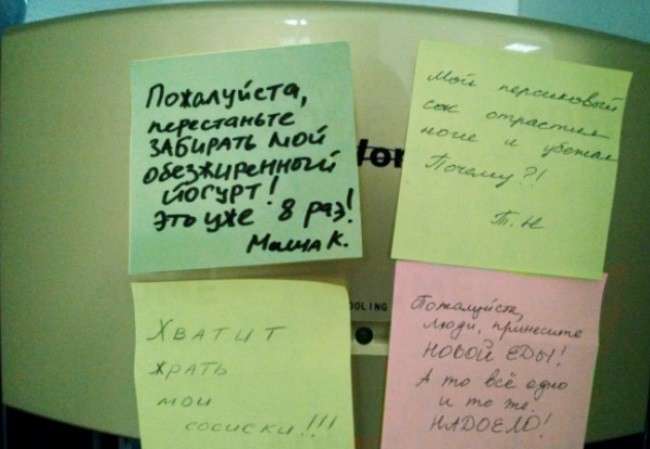 Пожалуйста,
перестаньте
ЗАБИРАТЬ МОЙ
обезжиренный
йогурт!
Это уже 8 раз!
Маша К.
Мой персиковый
сок отрастил
ноги и убежал
Почему?!
Т.Н
Хватит
жрать
мои
сосиски!!!
OOLING
Пожалуйста,
люди, принесите
НОВОЙ ЕДЫ!
А то всё одно
и то же.
НАДОЕЛО!